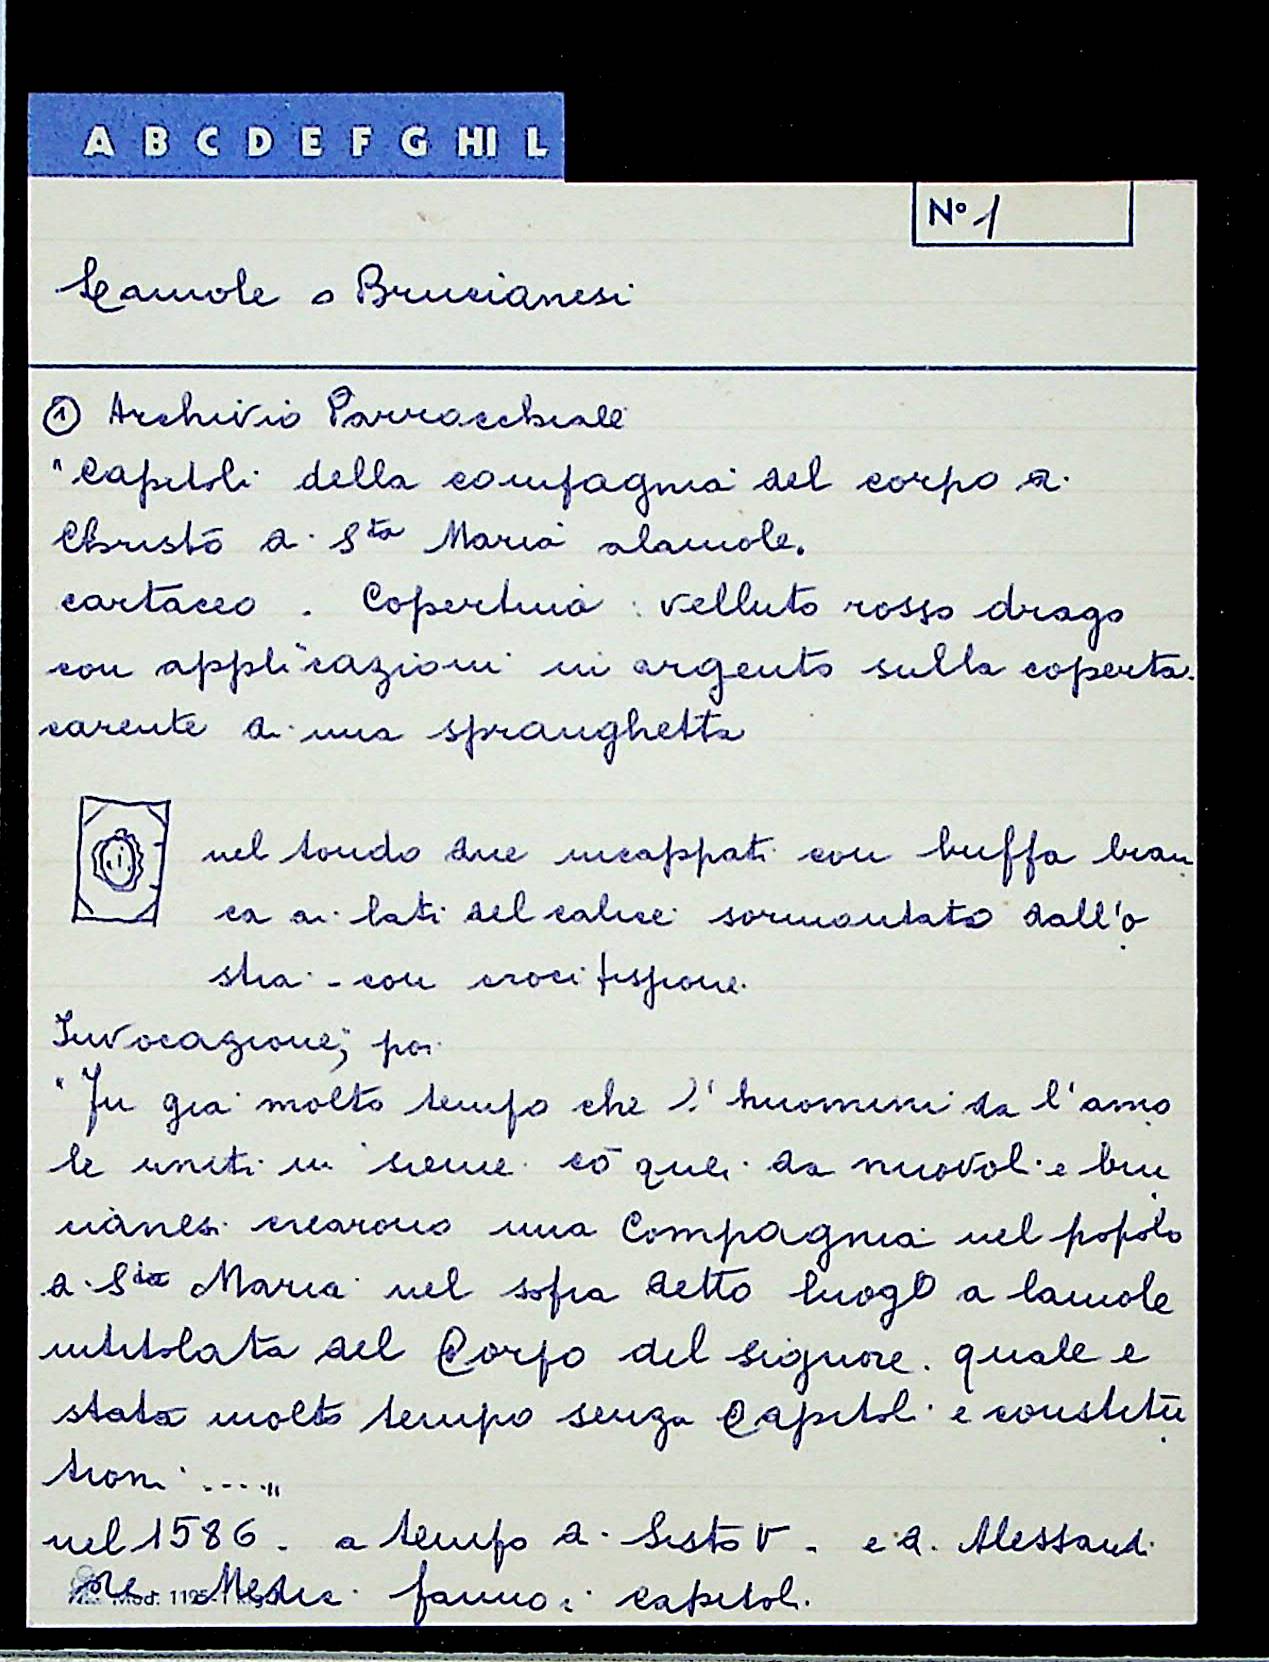 A B C D E F G HI L
N° 1
Lamole o Brucianesi
① Archivio Parrocchiale
"Capitoli della compagnia del corpo di
Christo di Sta Maria alamole.
cartaceo. Copertina: velluto rosso drago
con applicazioni in argento sulla coperta.
carente di una spranghetta
nel tondo due incappati con buffa bian
ca ai lati del calice sormontato dall'o
stia - con crocifissione.
Invocazione; poi
"Fu gia molto tempo che l'huomini da l'amo
le uniti in sieme cō quei da nuovoli e bru
cianesi crearono una Compagnia nel popolo
di Sta Maria nel sopra detto luogo a lamole
intitolata del Corpo del signore. quale e
stata molto tempo senza Capitoli e constitu
tioni ...."
nel 1586 - a tempo di Sisto V - e di Alessand
de Medici fanno i capitoli.